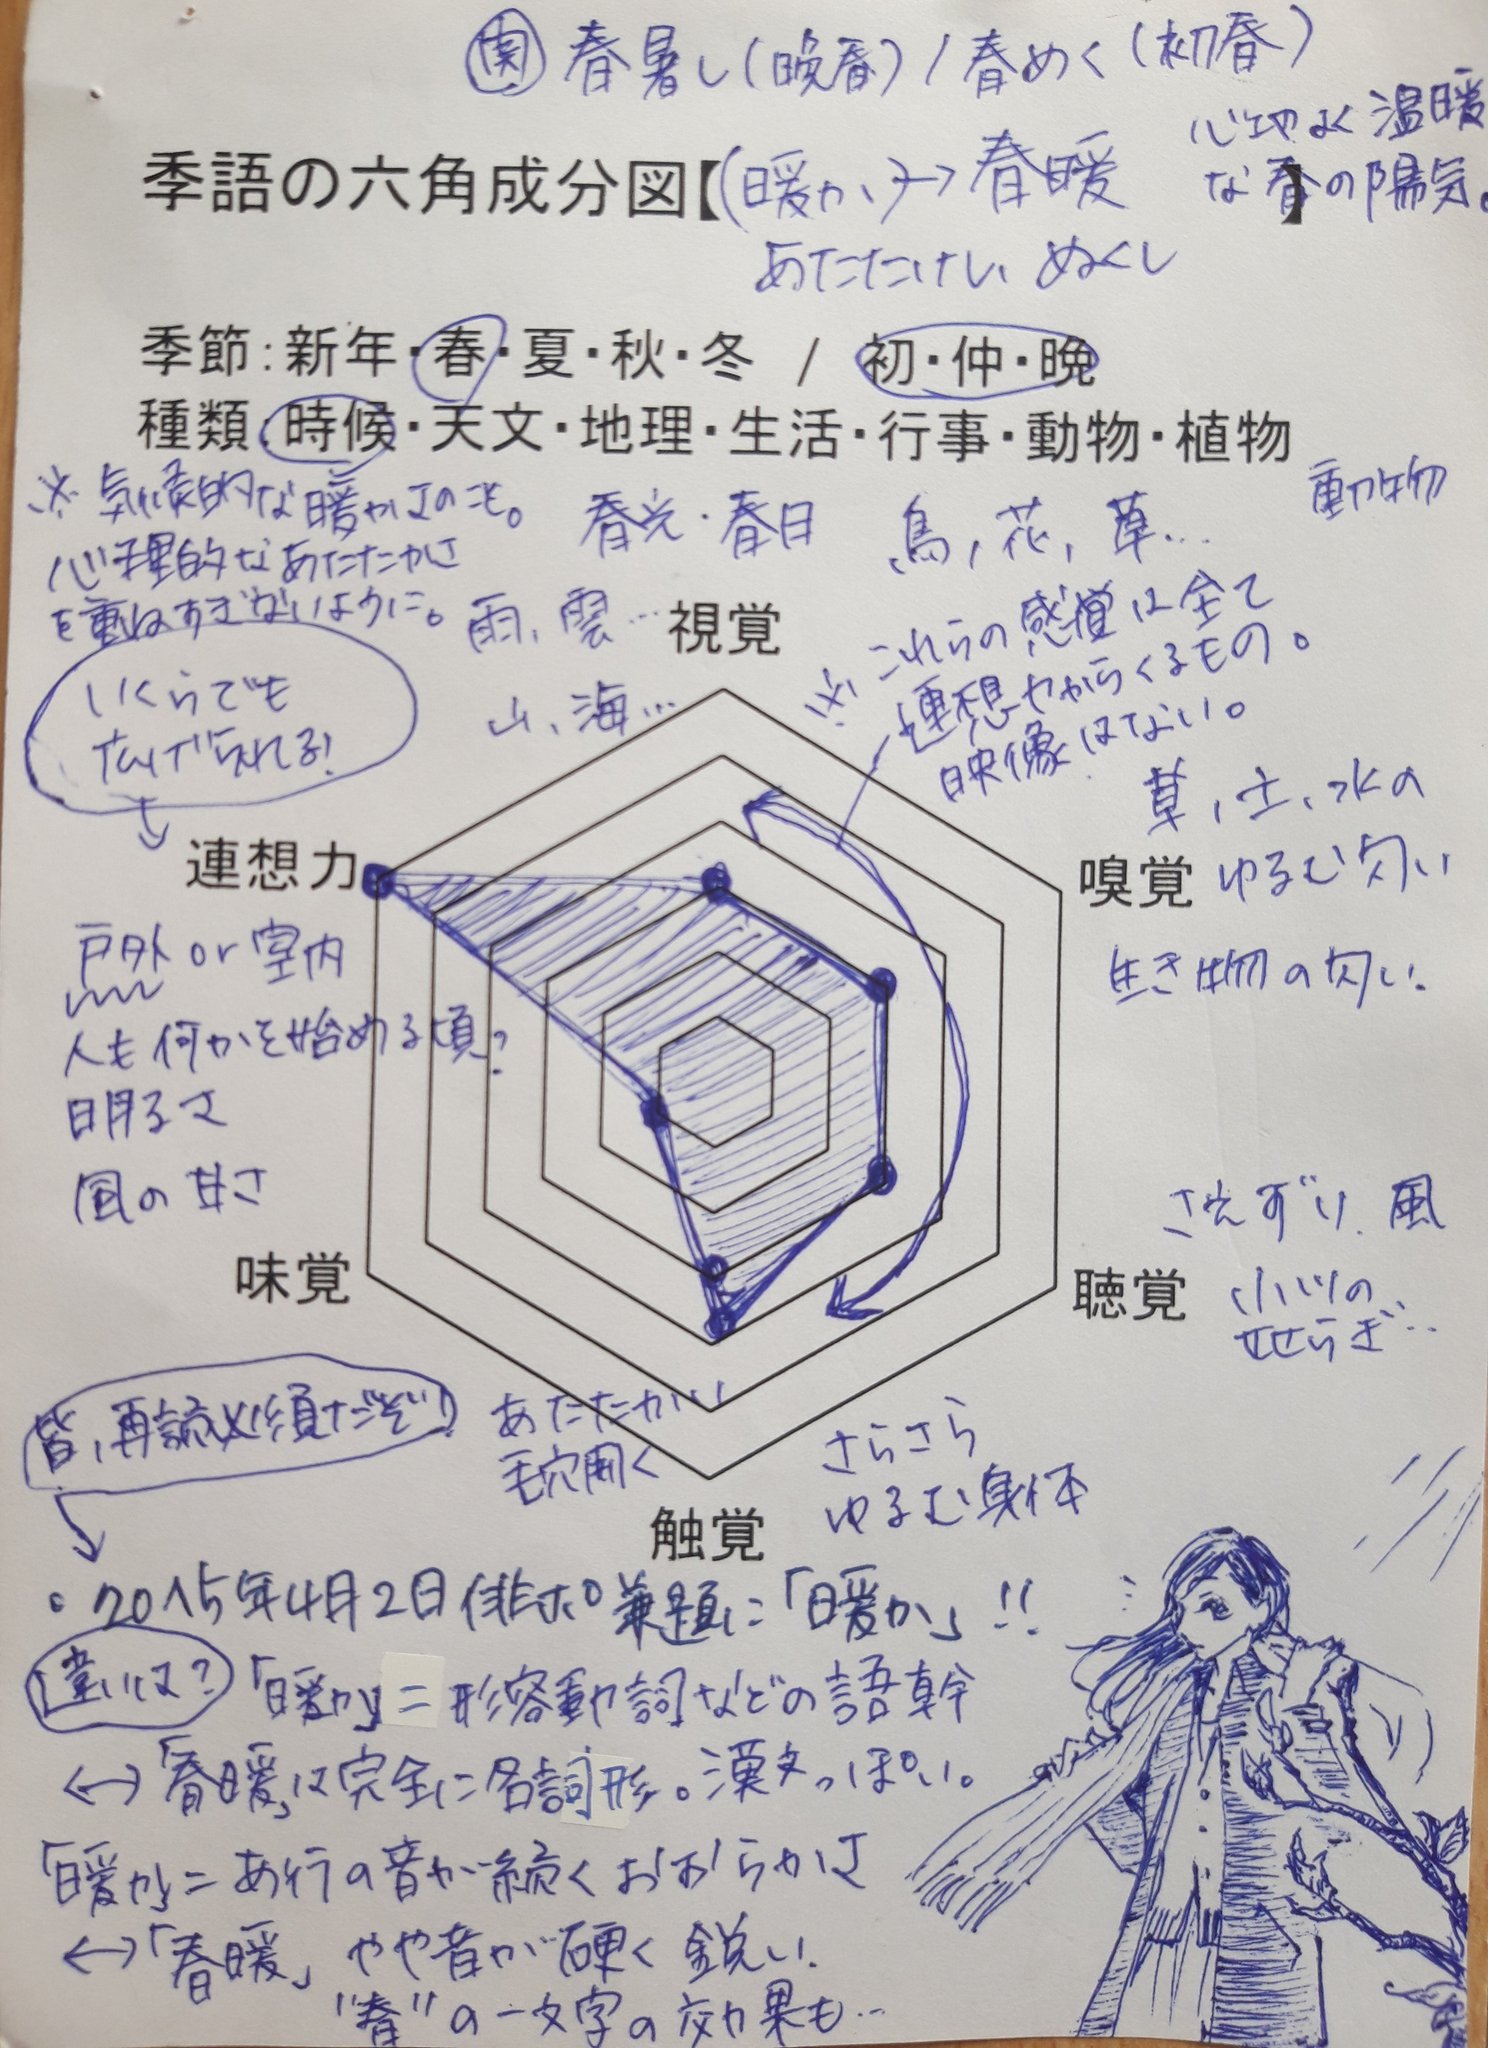 関 春暑し(晩春)/春めく(初春)
心地よく温暖
な春の陽気。
季語の六角成分図【(暖か)→春暖】
あたたけし ぬくし
季節:新年・春・夏・秋・冬 / 初・仲・晩
種類:時候・天文・地理・生活・行事・動物・植物
※気候的な暖かさのこと。
心理的なあたたかさ
を重ねすぎないように。
春光・春日 鳥,花,草… 動物
雨、雲…
山、海…
※これらの感覚は全て
連想力からくるもの。
映像はない。
いくらでも
広げられる!
視覚
連想力
戸外or室内
人も何かを始める頃?
明るさ
風の甘さ
草,土,水の
ゆるむ匂い
嗅覚
生き物の匂い
味覚
聴覚
さえずり、風
小川の
せせらぎ…
触覚
あたたかい
毛穴開く
さらさら
ゆるむ身体
皆,再読必須だぞ!
・2015年4月2日俳ポ兼題に「暖か」!!
違いは? 「暖か」=形容動詞などの語幹
↔「春暖」は完全に名詞形。漢文っぽい。
「暖か」=あ行の音が続くおおらかさ
↔「春暖」やや音が硬く鋭い.
"春"の一文字の効果も…